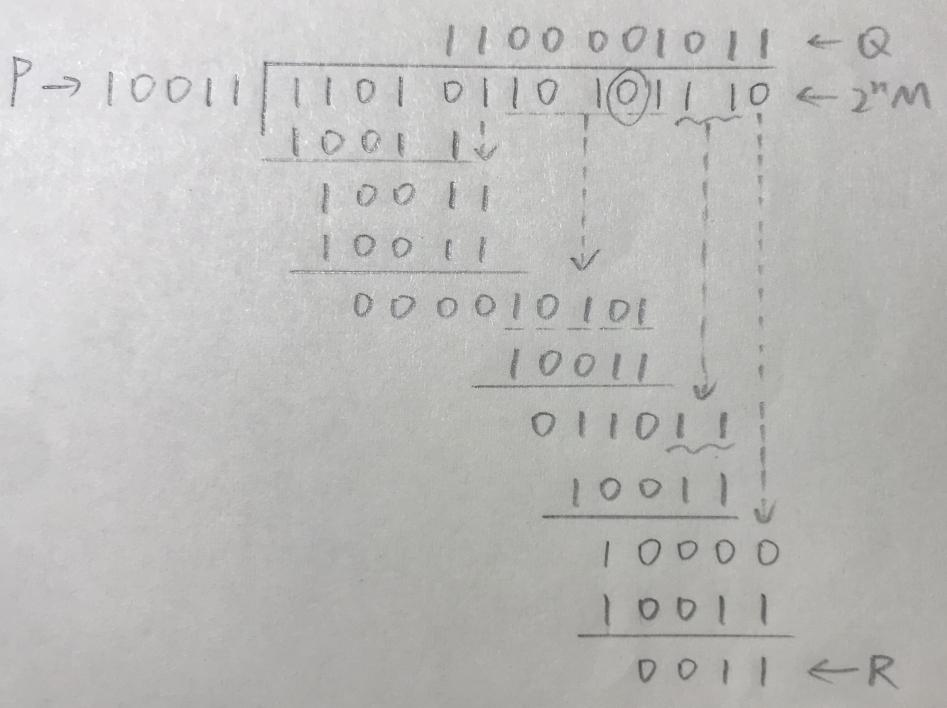 1100001011 ← Q
P → 10011 1101 0110 1011 10 ← 2ⁿM
1001 1
10011
10011
000010101
10011
011011
10011
10000
10011
0011 ← R